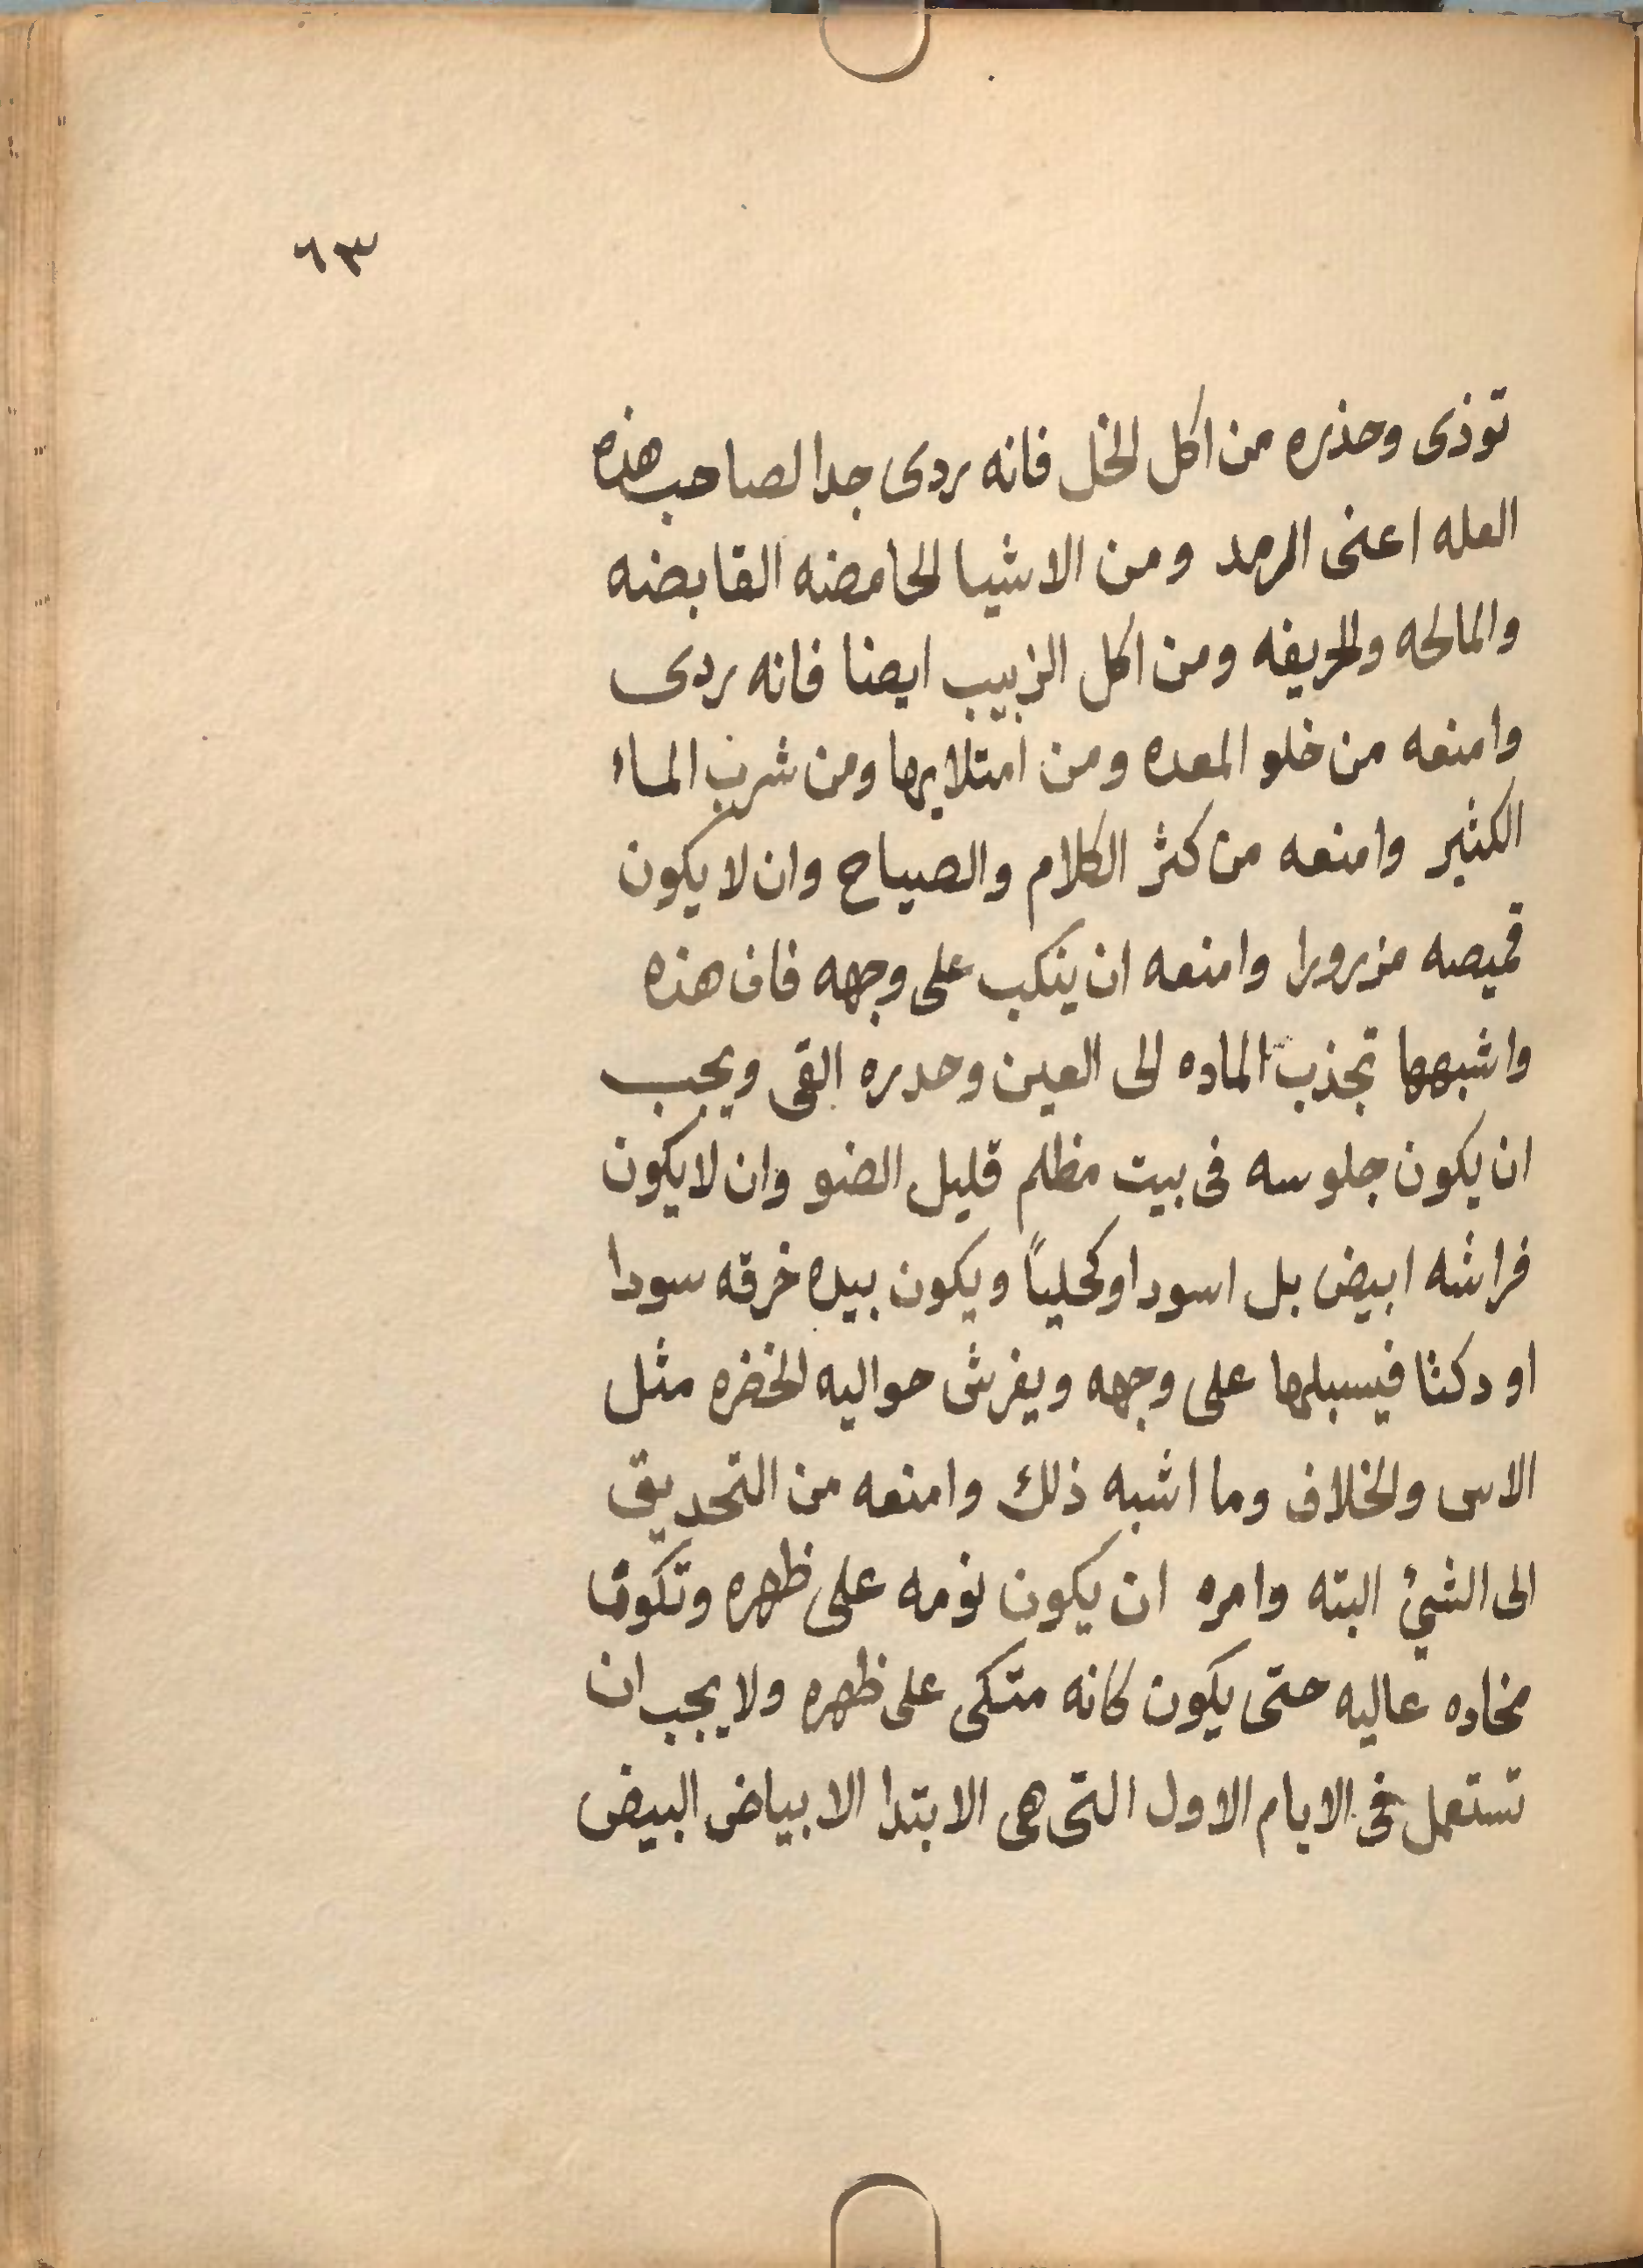 ٦٣
توذى وحذره من اكل الخل فانه ردى جدا لصاحب هذه
العله اعنى الرمد ومن الاشيا الحامضه القابضه
والمالحه والحريفه ومن اكل الزبيب ايضا فانه ردى
وامنعه من خلو المعده ومن امتلايها ومن شرب الماء
الكثير وامنعه من كثر الكلام والصياح وان لا يكون
قميصه مزرورا وامنعه ان ينكب على وجهه فان هذه
واشبهها تجذب الماده الى العين وحدره القى ويجب
ان يكون جلوسه فى بيت مظلم قليل الضو وان لا يكون
فراشه ابيض بل اسود او كحلياً ويكون بيده خرقه سودا
او دكنا فيسبلها على وجهه ويفرش حواليه الخضره مثل
الاس والخلاف وما اشبه ذلك وامنعه من التحديق
الى الشئ البته وامره ان يكون نومه على ظهره وتكون
مخاده عاليه حتى يكون كانه متكى على ظهره ولا يجب ان
تستعمل فى الايام الاول التى هى الابتدا الا بياض البيض